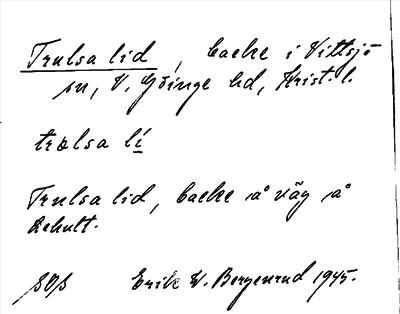 Trulsa lid, backe i Vittsjö
sn, V. Göinge hd, Krist. l.
trɵlsa lí
Trulsa lid, backe å väg å
Rehult.
Erik W. Bergenrud 1945.